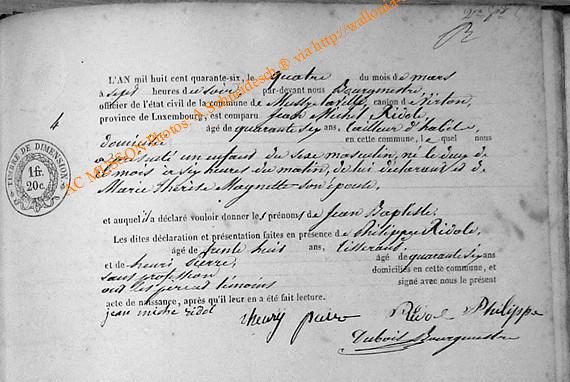 4
L'AN mil huit cent quarante-six, le quatre du mois de mars
à sept heures du soir, par-devant nous Bourgmestre,
officier de l'état civil de la commune de Mussy-la-ville, canton de Virton,
province de Luxembourg, est comparu Jean Michel Ridole,
âgé de quarante six ans, tailleur d'habits,
domicilié en cette commune, le quel nous
a présenté un enfant du sexe masculin, né le deux de
ce mois à six heures du matin, de lui déclarant et de
Marie Thérèse Maynette son épouse,
et auquel il a déclaré vouloir donner les prénoms de Jean Baptiste.
Les dites déclaration et présentation faites en présence de Philippe Ridole,
âgé de trente huit ans, tisserand,
et de henri Pierre, âgé de quarante six ans
sans profession domiciliés en cette commune, et
ont les père et témoins signé avec nous le présent
acte de naissance, après qu'il leur en a été fait lecture.
jean miche ridol henry piero Ridole Philippe
Dubois Bourgmestre
TIMBRE DE DIMENSION
1 fr.
20 c.
AC MUSSON Photos: A. Schmidesch ® via http://wallonia